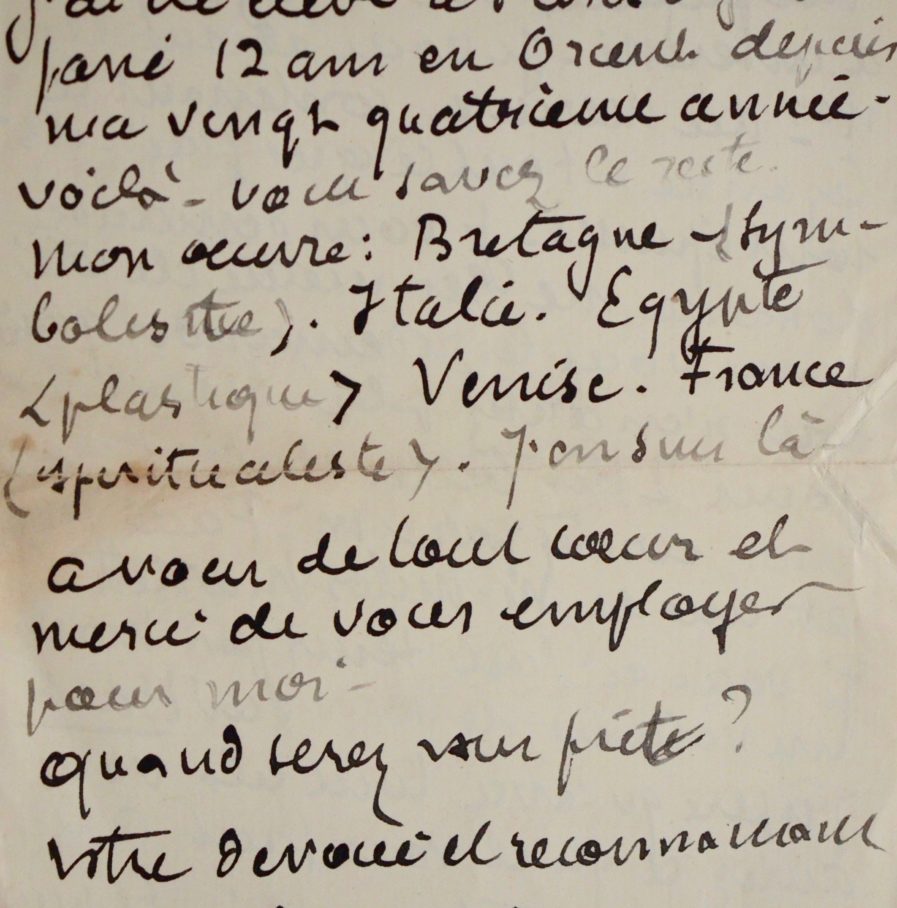 passé 12 ans en Orient depuis
ma vingt quatrième année -
voilà - vous savez le reste.
mon œuvre : Bretagne - (sym-
boliste). Italie. Egypte
(plastique) Venise. France
(spiritualiste). J'en suis là -
a vous de tout cœur et
merci de vous employer
pour moi -
quand serez vous prête ?
votre devoué et reconnaissant